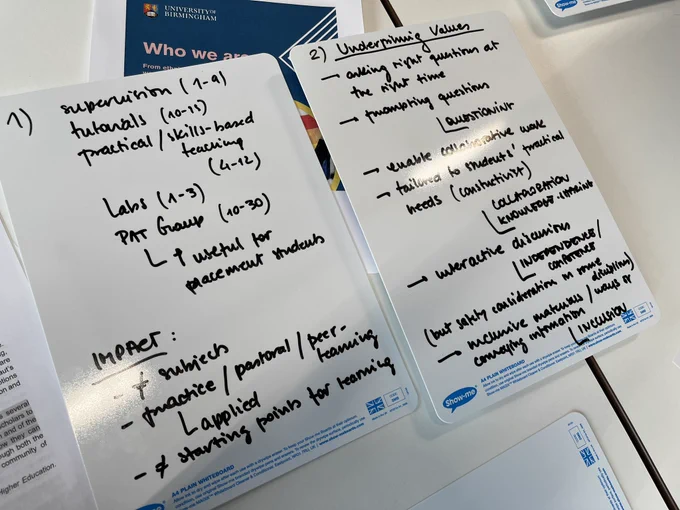 UNIVERSITY OF
BIRMINGHAM
Who we are
1)
supervision (1-9)
tutorials (10-15)
practical / skills-based
teaching
(4-12)
Labs (1-3)
PAT Group (10-30)
↑ useful for
placement students
IMPACT:
- ≠ subjects
- practice / pastoral / peer-
learning
applied
- ≠ starting points for learning
A4 PLAIN WHITEBOARD
2) Underpinning Values
→ asking right questions at
the right time
→ prompting questions
QUESTIONING
→ enable collaborative work
→ tailored to students' practical
needs (constructivist)
COLLABORATION
KNOWLEDGE-SHARING
→ interactive discussions
INDEPENDENCE /
COMPETENCE
(but safety consideration in some
disciplines)
→ inclusive materials / ways of
conveying information
INCLUSION
Show-me
A4 PLAIN WHITEBOARD
Show-me
several
scholars to
and of the
how they can
through both the
community of
Higher Education.